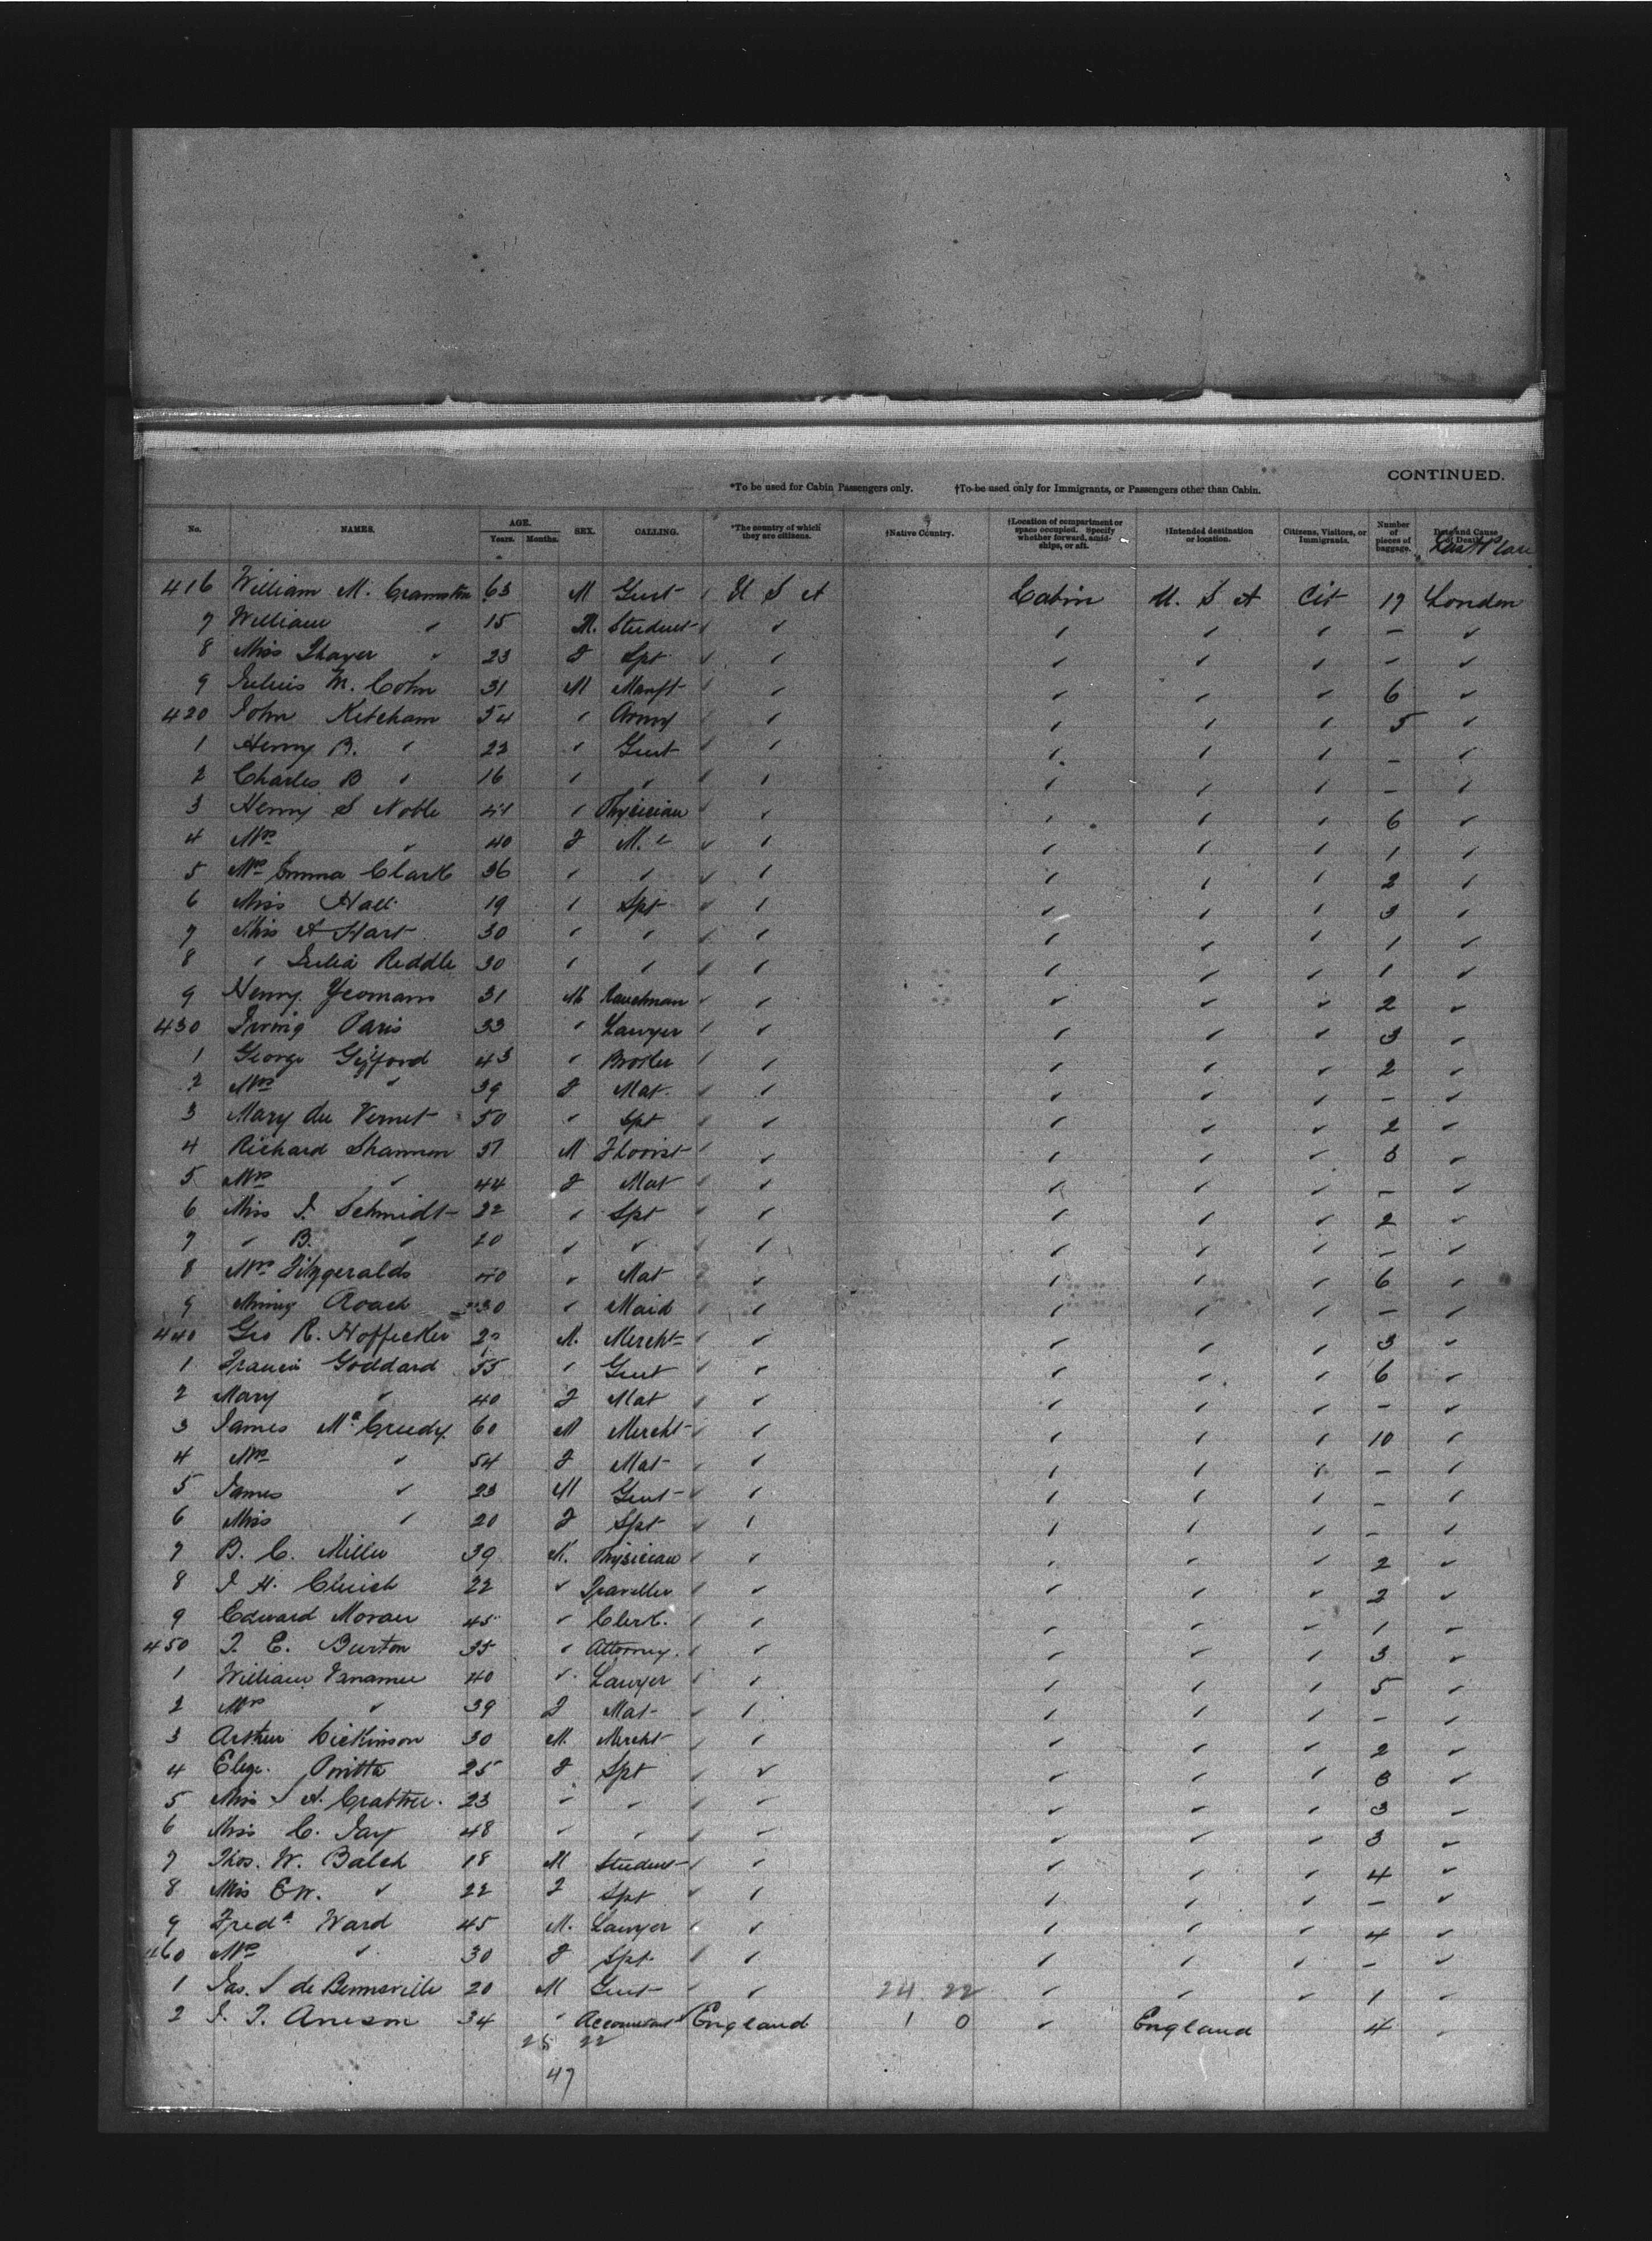 CONTINUED.
*To be used for Cabin Passengers only. †To be used only for Immigrants, or Passengers other than Cabin.
No. NAMES. AGE. Years. Months. SEX. CALLING. *The country of which they are citizens. †Native Country. †Location of compartment or space occupied. Specify whether forward, amidships, or aft. †Intended destination or location. Citizens, Visitors, or Immigrants. Number of pieces of baggage. Date and Cause of Death.
416 William M. 63 M Gent U S A Cabin U. S. A Cit 17 London
7 William " 15 M. Student " " " " – "
8 Miss Thayer " 23 F Spt " " " " – "
9 Julius M. Cohn 31 M Manft " " " " 6 "
420 John Ketcham 54 " Army " " " " 5 "
1 Henry B. " 22 " Gent " " " " – "
2 Charles B " 16 " " " " " " – "
3 Henry S Noble " Physician " " " " 6 "
4 Mrs " 40 F " " " " 1 "
5 Mrs Emma Clark 36 " " " " " " 2 "
6 Miss Hall 19 " Spt " " " " 3 "
7 Miss A Hart 30 " " " " " " 1 "
8 " Julia Riddle 30 " " " " " " 1 "
9 Henry Yeomans 31 M Ranchman " " " " 2 "
430 Irving Paris 33 " Lawyer " " " " 3 "
1 George Gifford 43 " Broker " " " " 2 "
2 Mrs " 39 F Mat. " " " " – "
3 Mary du Vernet 50 " Spt " " " " 2 "
4 Richard Shannon 51 M Florist " " " " 3 "
5 Mrs " 44 F Mat " " " " – "
6 Miss J. Schmidt 22 " Spt " " " " 2 "
7 " B. " 20 " " " " " " – "
8 Mrs Fitzgerald 40 " Mat " " " " 6 "
9 Roach 30 " Maid " " " " – "
440 Geo R. Hoffecker M. Mercht " " " " 3 "
1 Francis Goddard 55 " Gent " " " " 6 "
2 Mary " 40 F Mat " " " " – "
3 James McCreedy 60 M Mercht " " " " 10 "
4 Mrs " 54 F Mat " " " " – "
5 James " 23 M Gent " " " " – "
6 Miss " 20 F Spt " " " " – "
7 B. C. Miller 39 M. Physician " " " " 2 "
8 J H. 22 " Traveller " " " " 2 "
9 Edward Moran 45 " Clerk. " " " " 1 "
450 T. E. Burton 35 " Attorney. " " " " 3 "
1 William Vanamee 40 " Lawyer " " " " 5 "
2 Mrs " 39 F Mat " " " " – "
3 Arthur Dickinson 30 M. Mercht " " " " 2 "
4 25 F Spt " " " " 3 "
5 Miss A. Crabtree. 23 " " " " " " 3 "
6 Miss C. Jay 48 " " " " " " 3 "
7 Thos. W. Balch 18 M Student " " " " 4 "
8 Miss E W. " 22 F Spt " " " " – "
9 Fredk Ward 45 M. Lawyer " " " " 4 "
460 Mrs " 30 F Spt " " " " – "
1 Jas. S de Bermeville 20 M Gent " 24 22 " " " 1 "
2 J. T. 34 " Accountant England 1 0 " England 4 "
25 22
47